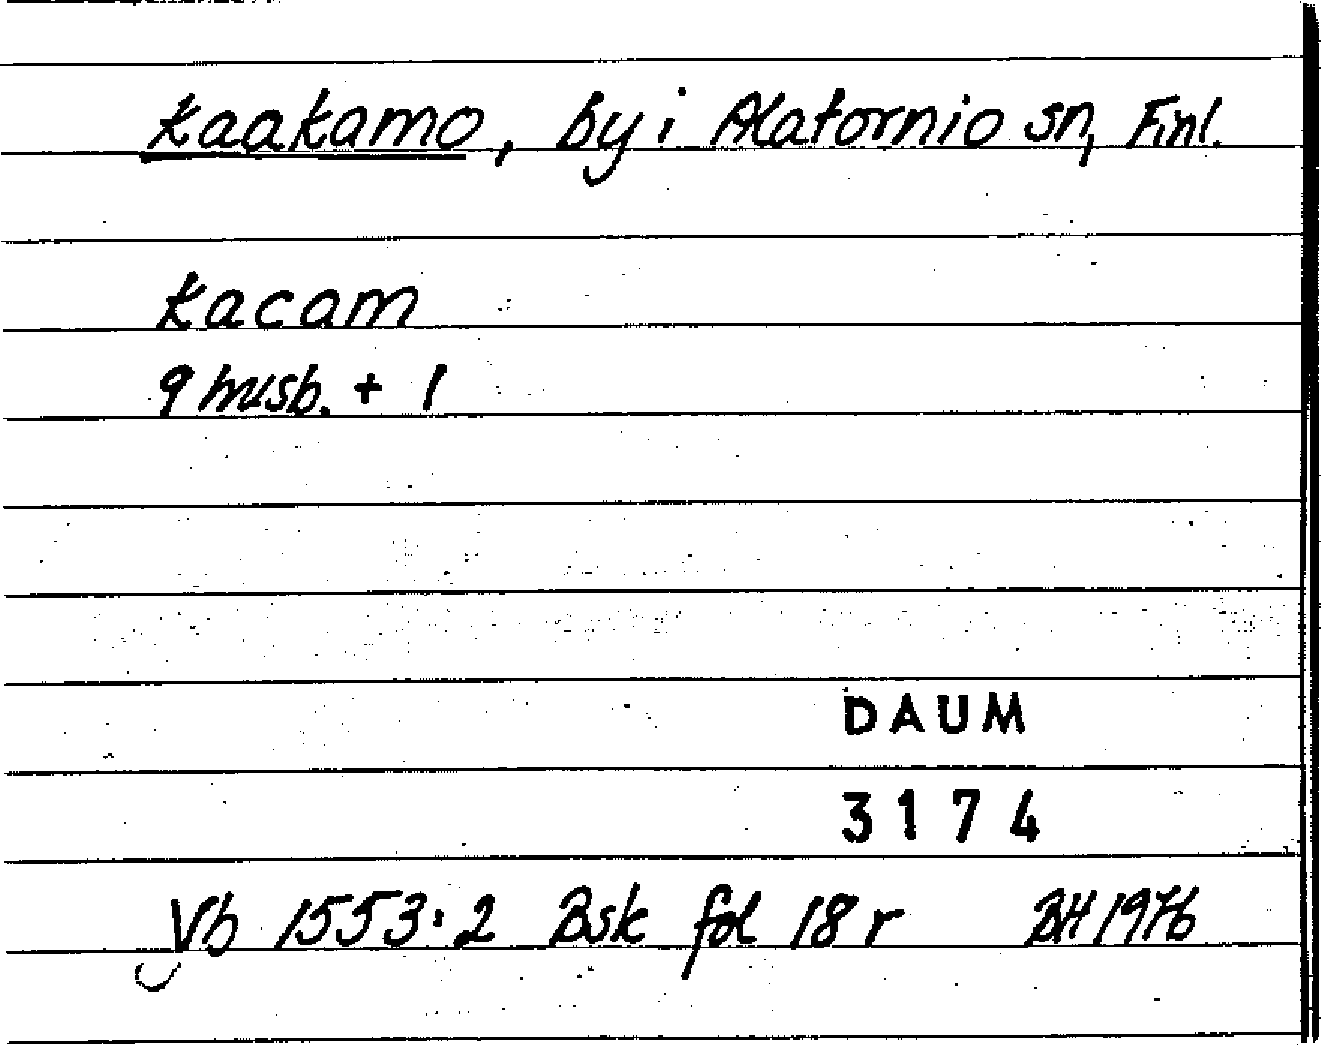 Kaakamo, by i Alatornio sn, Finl.
Kacam
9 husb. + 1
DAUM
3174
Vb 1553:2 Bsk fol 18 r BH 1976